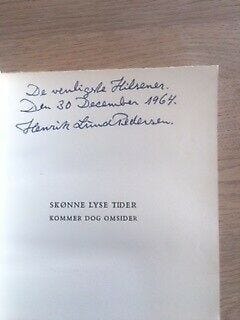 De venligste Hilsener.
Den 30 December 1964.
Henrik Lund Pedersen.
SKØNNE LYSE TIDER
KOMMER DOG OMSIDER